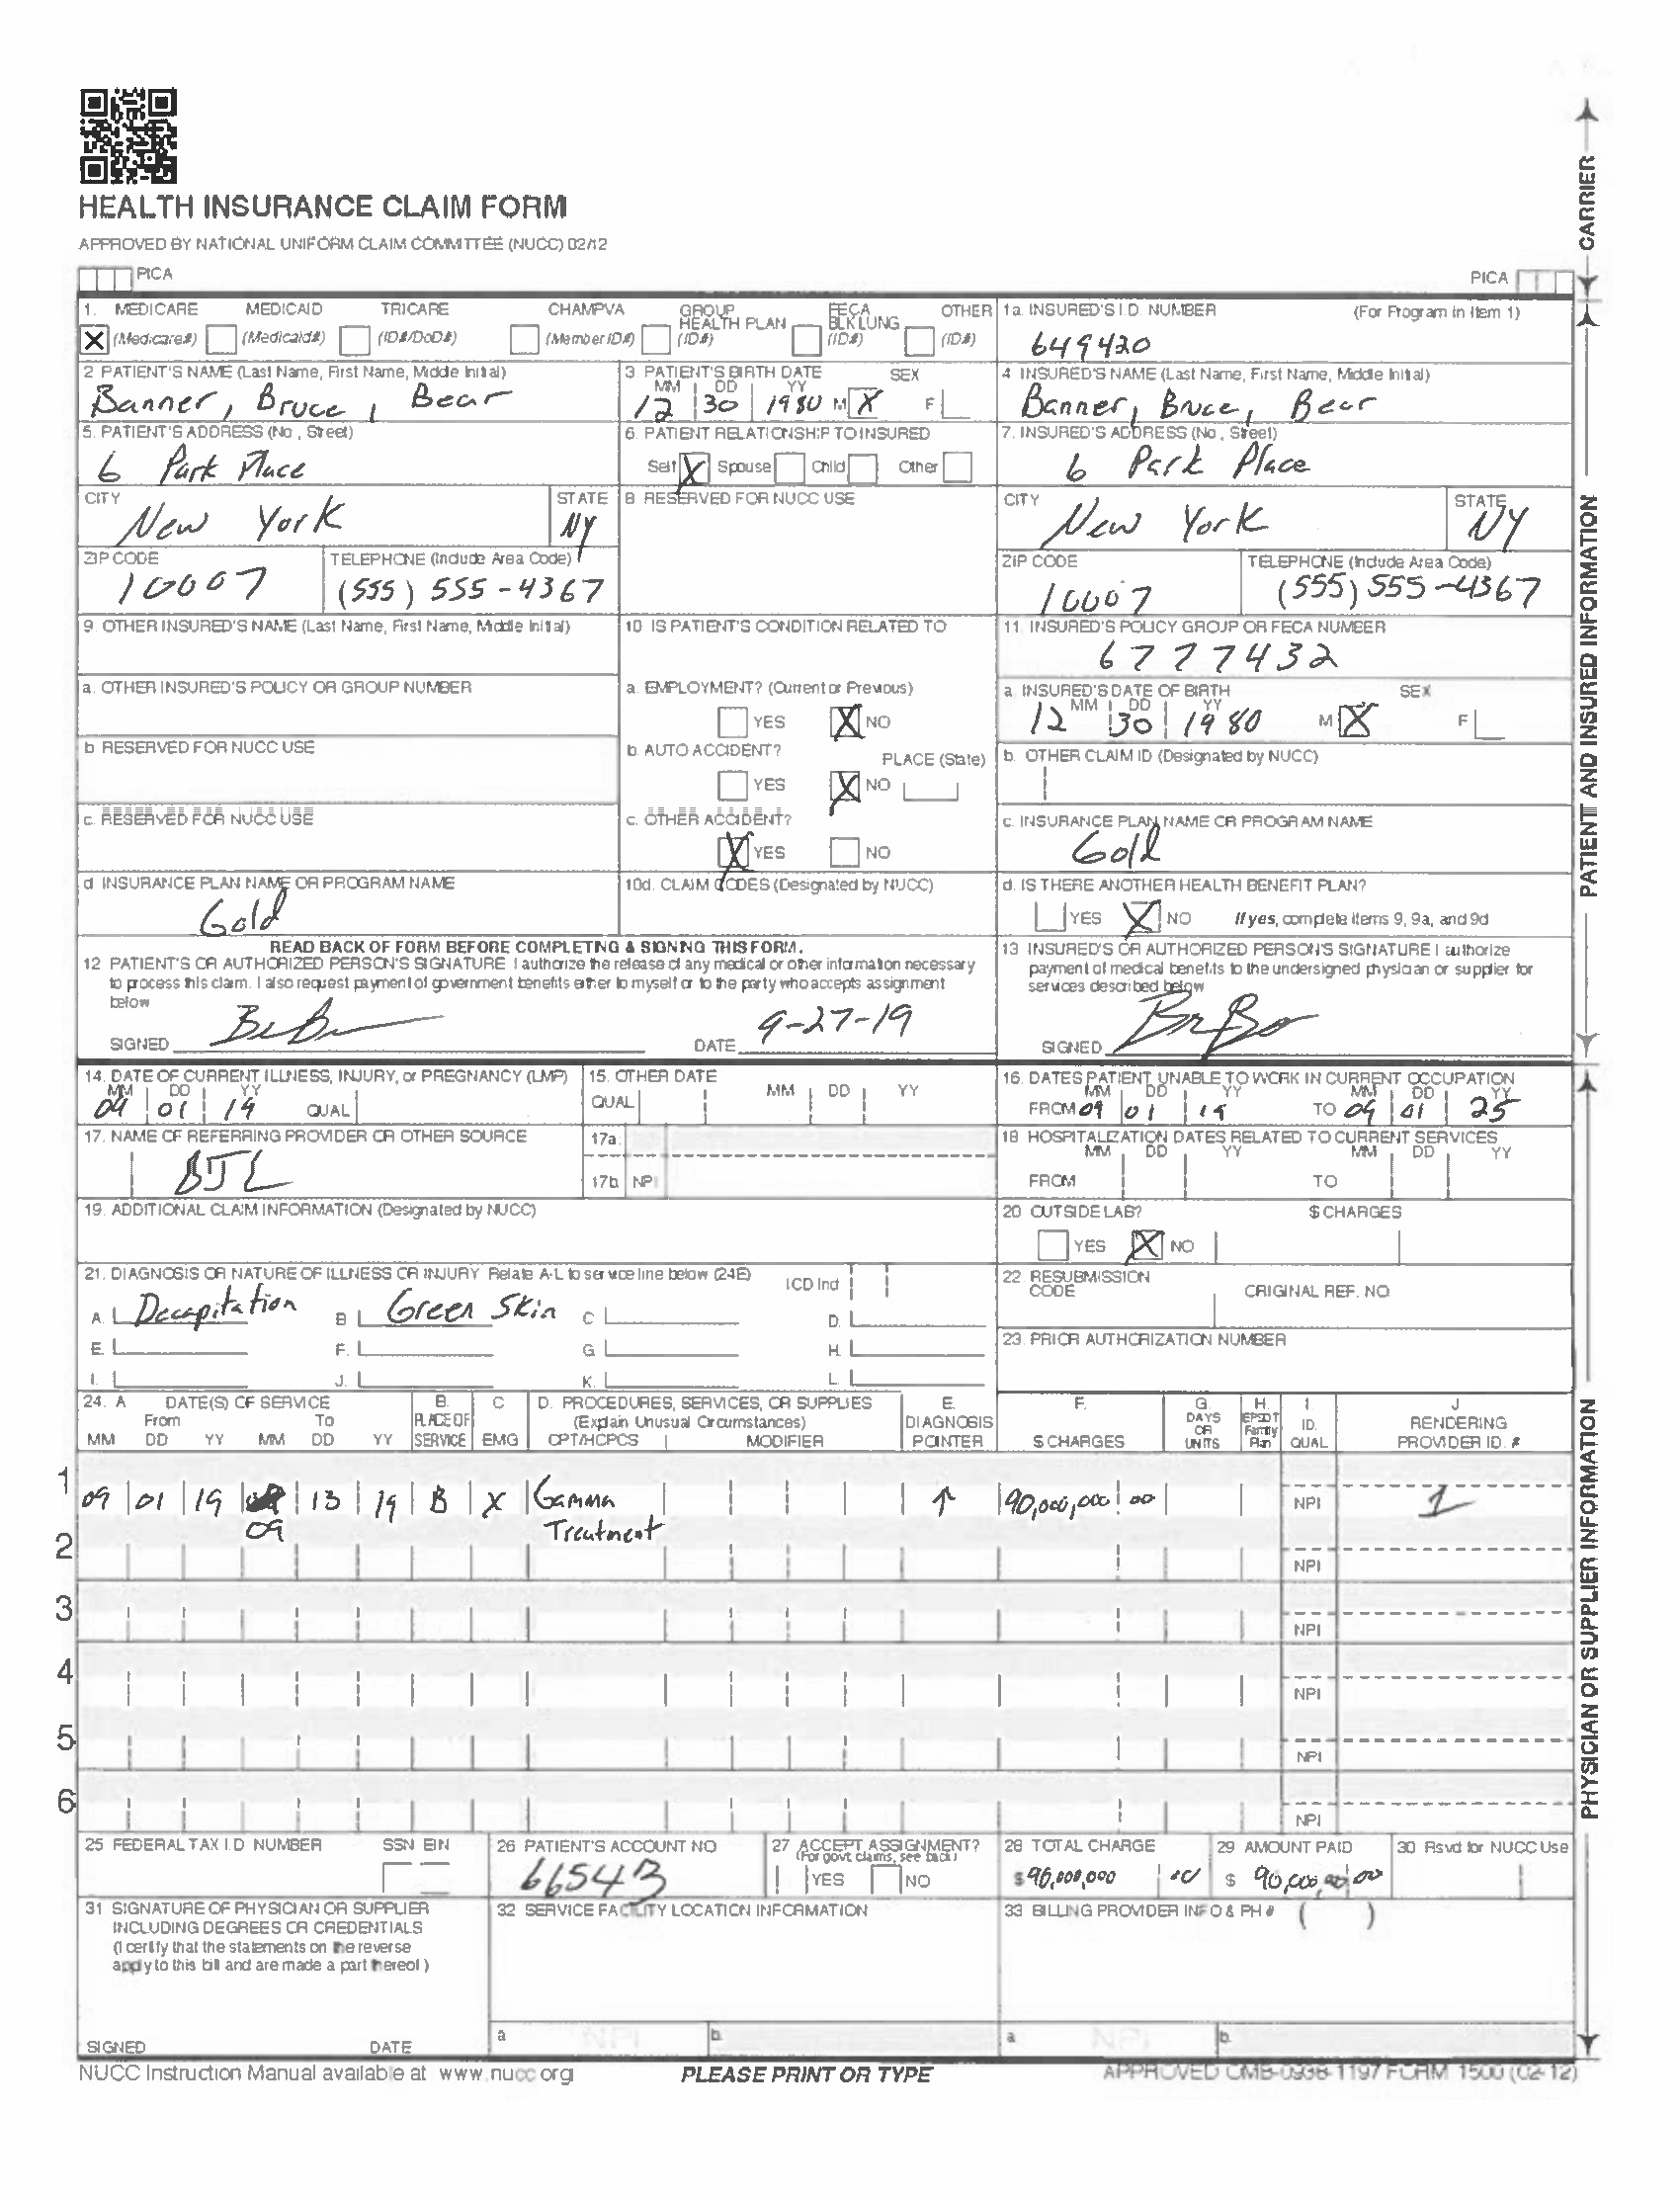 HEALTH INSURANCE CLAIM FORM
APPROVED BY NATIONAL UNIFORM CLAIM COMMITTEE (NUCC) 02/12
PICA
PICA
CARRIER
1. MEDICARE MEDICAID TRICARE CHAMPVA GROUP HEALTH PLAN FECA BLK LUNG OTHER
X (Medicare#) (Medicaid#) (ID#/DoD#) (Member ID#) (ID#) (ID#) (ID#)
1a. INSURED'S I.D. NUMBER (For Program in Item 1)
649420
2. PATIENT'S NAME (Last Name, First Name, Middle Initial)
Banner, Bruce, Bear
3. PATIENT'S BIRTH DATE SEX
MM DD YY
12 30 1980 M X F
4. INSURED'S NAME (Last Name, First Name, Middle Initial)
Banner, Bruce, Bear
5. PATIENT'S ADDRESS (No., Street)
6 Park Place
6. PATIENT RELATIONSHIP TO INSURED
Self X Spouse Child Other
7. INSURED'S ADDRESS (No., Street)
6 Park Place
CITY STATE
New York NY
8. RESERVED FOR NUCC USE
CITY STATE
New York NY
ZIP CODE TELEPHONE (Include Area Code)
10007 (555) 555-4367
ZIP CODE TELEPHONE (Include Area Code)
10007 (555) 555-4367
9. OTHER INSURED'S NAME (Last Name, First Name, Middle Initial)
10. IS PATIENT'S CONDITION RELATED TO
11. INSURED'S POLICY GROUP OR FECA NUMBER
6777432
a. OTHER INSURED'S POLICY OR GROUP NUMBER
a. EMPLOYMENT? (Current or Previous)
YES X NO
a. INSURED'S DATE OF BIRTH SEX
MM DD YY
12 30 1980 M X F
b. RESERVED FOR NUCC USE
b. AUTO ACCIDENT? PLACE (State)
YES X NO
b. OTHER CLAIM ID (Designated by NUCC)
c. RESERVED FOR NUCC USE
c. OTHER ACCIDENT?
X YES NO
c. INSURANCE PLAN NAME OR PROGRAM NAME
Gold
d. INSURANCE PLAN NAME OR PROGRAM NAME
Gold
10d. CLAIM CODES (Designated by NUCC)
d. IS THERE ANOTHER HEALTH BENEFIT PLAN?
YES X NO If yes, complete items 9, 9a, and 9d
READ BACK OF FORM BEFORE COMPLETING & SIGNING THIS FORM.
12. PATIENT'S OR AUTHORIZED PERSON'S SIGNATURE I authorize the release of any medical or other information necessary
to process this claim. I also request payment of government benefits either to myself or to the party who accepts assignment
below
SIGNED DATE 9-27-19
13. INSURED'S OR AUTHORIZED PERSON'S SIGNATURE I authorize
payment of medical benefits to the undersigned physician or supplier for
services described below
SIGNED
PATIENT AND INSURED INFORMATION
14. DATE OF CURRENT ILLNESS, INJURY, or PREGNANCY (LMP)
MM DD YY
09 01 19 QUAL
15. OTHER DATE
QUAL MM DD YY
16. DATES PATIENT UNABLE TO WORK IN CURRENT OCCUPATION
MM DD YY MM DD YY
FROM 09 01 19 TO 09 01 25
17. NAME OF REFERRING PROVIDER OR OTHER SOURCE
BJL
17a.
17b. NPI
18. HOSPITALIZATION DATES RELATED TO CURRENT SERVICES
MM DD YY MM DD YY
FROM TO
19. ADDITIONAL CLAIM INFORMATION (Designated by NUCC)
20. OUTSIDE LAB? $ CHARGES
YES X NO
21. DIAGNOSIS OR NATURE OF ILLNESS OR INJURY Relate A-L to service line below (24E) ICD Ind
A. Decapitation B. Green Skin C. D.
E. F. G. H.
I. J. K. L.
22. RESUBMISSION CODE ORIGINAL REF. NO.
23. PRIOR AUTHORIZATION NUMBER
24. A. DATE(S) OF SERVICE B. C. D. PROCEDURES, SERVICES, OR SUPPLIES E. F. G. H. I. J.
From To PLACE OF (Explain Unusual Circumstances) DIAGNOSIS DAYS OR EPSDT Family ID. RENDERING
MM DD YY MM DD YY SERVICE EMG CPT/HCPCS MODIFIER POINTER $ CHARGES UNITS Plan QUAL. PROVIDER ID. #
1 09 01 19 09 13 19 B X Gamma Treatment ↑ 90,000,000 00 NPI 1
2 NPI
3 NPI
4 NPI
5 NPI
6 NPI
25. FEDERAL TAX I.D. NUMBER SSN EIN
26. PATIENT'S ACCOUNT NO.
66543
27. ACCEPT ASSIGNMENT?
(For govt. claims, see back)
YES NO
28. TOTAL CHARGE
$ 90,000,000 00
29. AMOUNT PAID
$
30. Rsvd for NUCC Use
31. SIGNATURE OF PHYSICIAN OR SUPPLIER
INCLUDING DEGREES OR CREDENTIALS
(I certify that the statements on the reverse
apply to this bill and are made a part thereof.)
SIGNED DATE
32. SERVICE FACILITY LOCATION INFORMATION
a. NPI b.
33. BILLING PROVIDER INFO & PH # ( )
a. NPI b.
PHYSICIAN OR SUPPLIER INFORMATION
NUCC Instruction Manual available at www.nucc.org
PLEASE PRINT OR TYPE
APPROVED OMB-0938-1197 FORM 1500 (02-12)